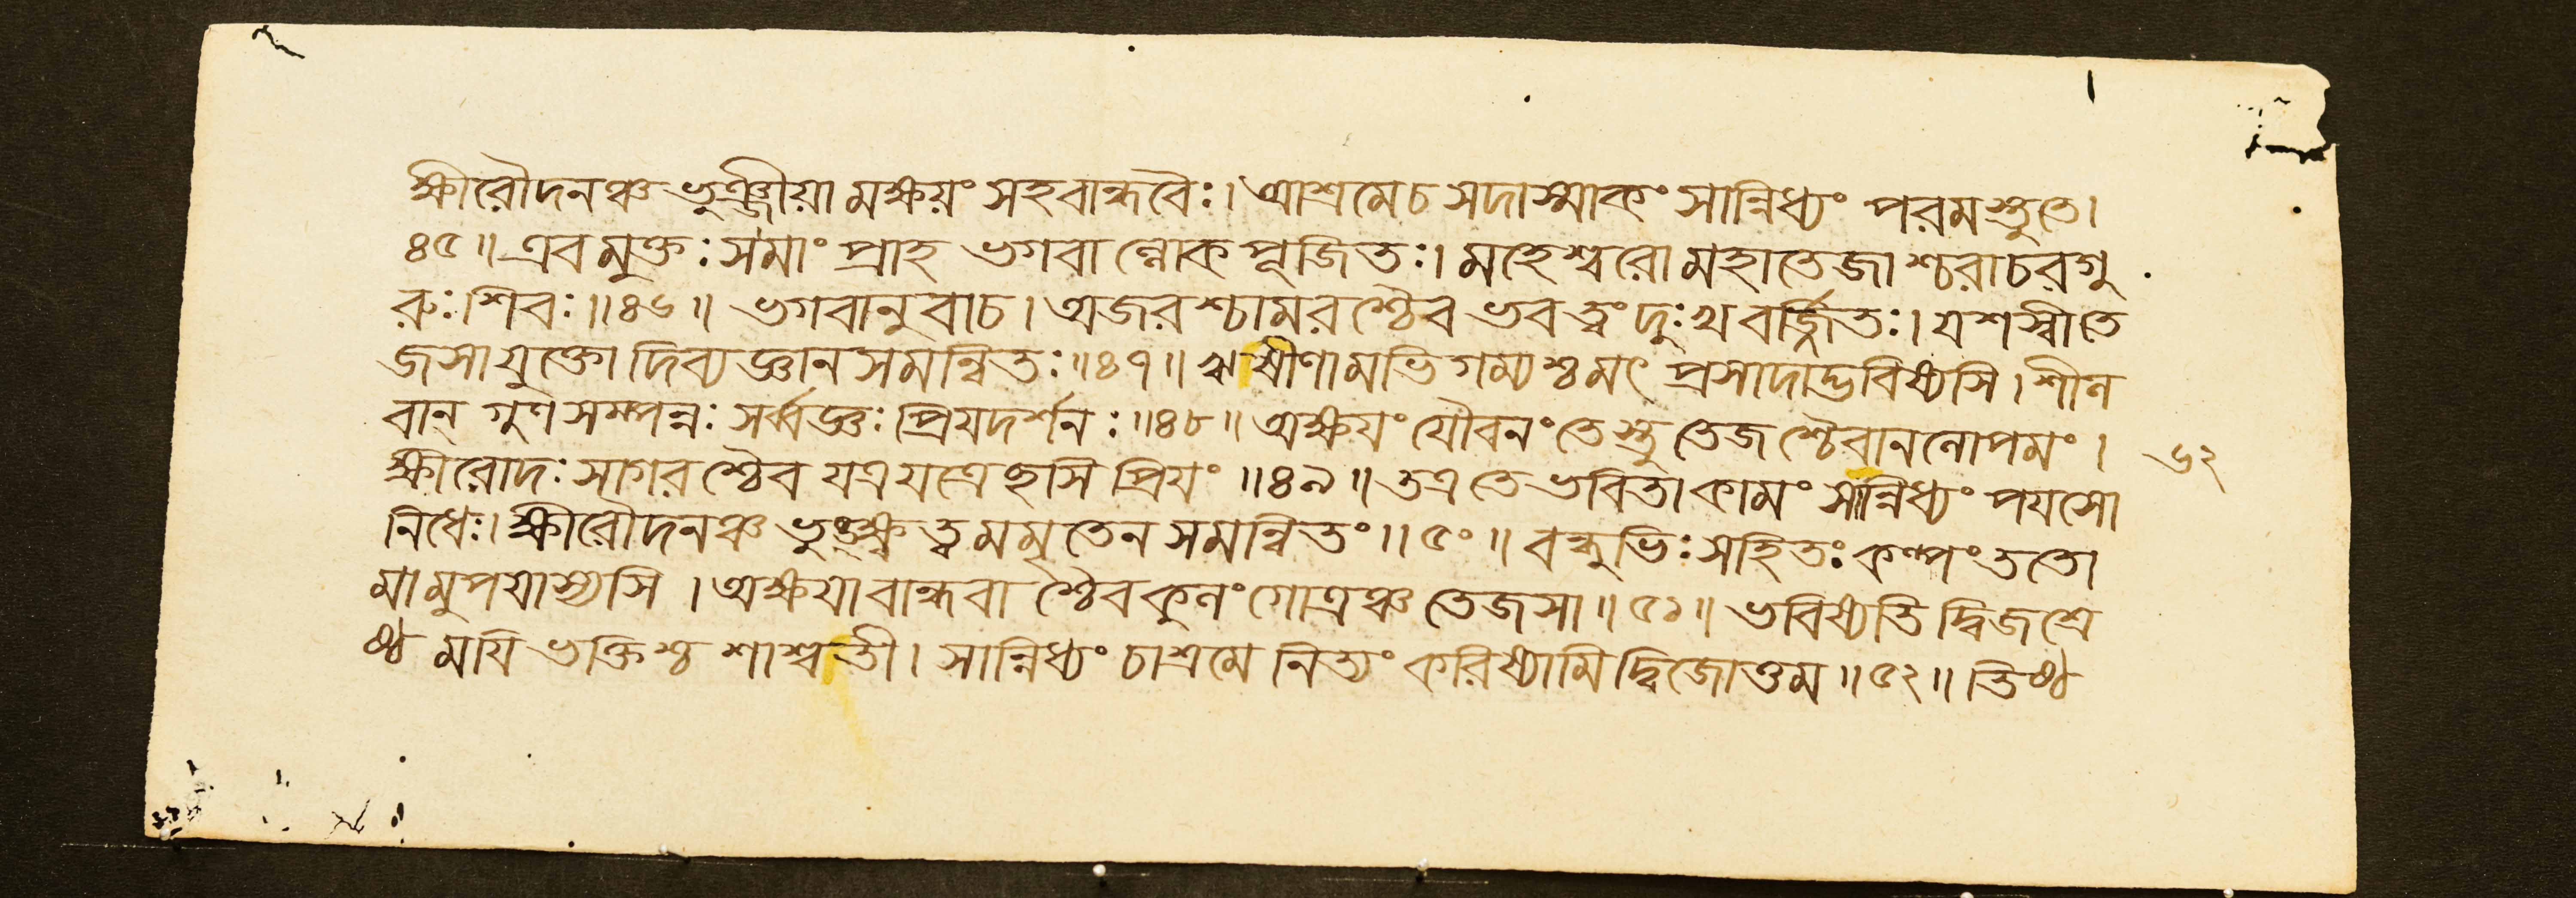 ক্ষীরৌদনঞ্চ ভুঞ্জীয়ামক্ষয়ং সহবান্ধবৈঃ। আশ্রমেচ সদাস্মাকং সান্নিধ্যং পরমস্তুতে।
৪৫॥ এবমুক্তঃ সমাং প্রাহ ভগবাল্লোকপূজিতঃ। মহেশ্বরো মহাতেজাশ্চরাচরগু
রুঃ শিবঃ॥৪৬॥ ভগবানুবাচ। অজরশ্চামরশ্চৈব ভবত্বং দুঃখবর্জ্জিতঃ। যশস্বীতে
জসাযুক্তো দিব্যজ্ঞানসমন্বিতঃ॥৪৭॥ ঋষীণামভিগম্যশ্চমৎ প্রসাদাদ্ভবিষ্যসি। শীল
বান্ গুণসম্পন্নঃ সর্ব্বজ্ঞঃ প্রিয়দর্শনঃ॥৪৮॥ অক্ষয়ং যৌবনং তেস্তু তেজশ্চৈবানলোপমং।
ক্ষীরোদঃ সাগরশ্চৈব যত্রযত্রেচ্ছসি প্রিয়ং॥৪৯॥ তত্রতে ভবিতা কামং সান্নিধ্যং পয়সো
৬২
নিধেঃ। ক্ষীরৌদনঞ্চ ভুঙ্ক্ষ্ব ত্বমমৃতেন সমন্বিতং॥৫০॥ বন্ধুভিঃ সহিতঃ কল্পং ততো
মামুপযাস্যসি। অক্ষয়া বান্ধবাশ্চৈব কুলং গোত্রঞ্চ তেজসা॥৫১॥ ভবিষ্যতি দ্বিজশ্রে
ষ্ঠ ময়ি ভক্তিশ্চ শাশ্বতী। সান্নিধ্যং চাশ্রমে নিত্যং করিষ্যামি দ্বিজোত্তম॥৫২॥ তিষ্ঠ